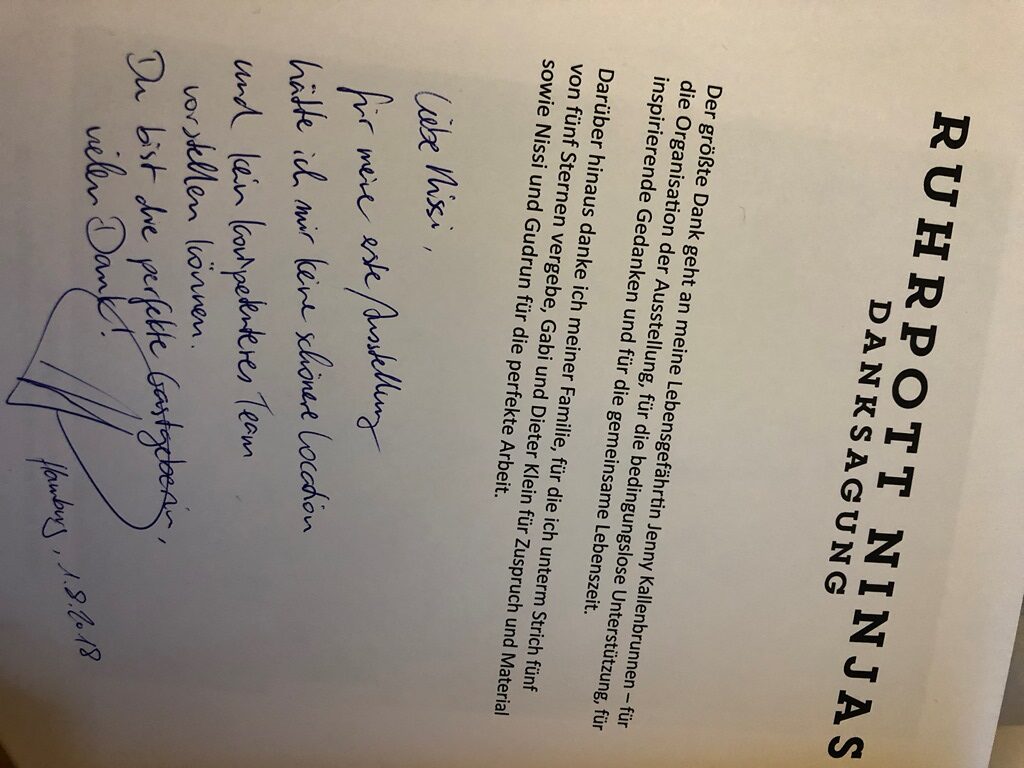 RUHRPOTT NINJAS
DANKSAGUNG
Der größte Dank geht an meine Lebensgefährtin Jenny Kallenbrunnen – für
die Organisation der Ausstellung, für die bedingungslose Unterstützung, für
inspirierende Gedanken und für die gemeinsame Lebenszeit.
Darüber hinaus danke ich meiner Familie, für die ich unterm Strich fünf
von fünf Sternen vergebe, Gabi und Dieter Klein für Zuspruch und Material
sowie Nissi und Gudrun für die perfekte Arbeit.
Liebe Nissi,
für meine erste Ausstellung
hätte ich mir keine schönere Location
und kein kompetenteres Team
vorstellen können.
Du bist die perfekte Gastgeberin,
vielen Dank!
Hamburg, 1.8.2018